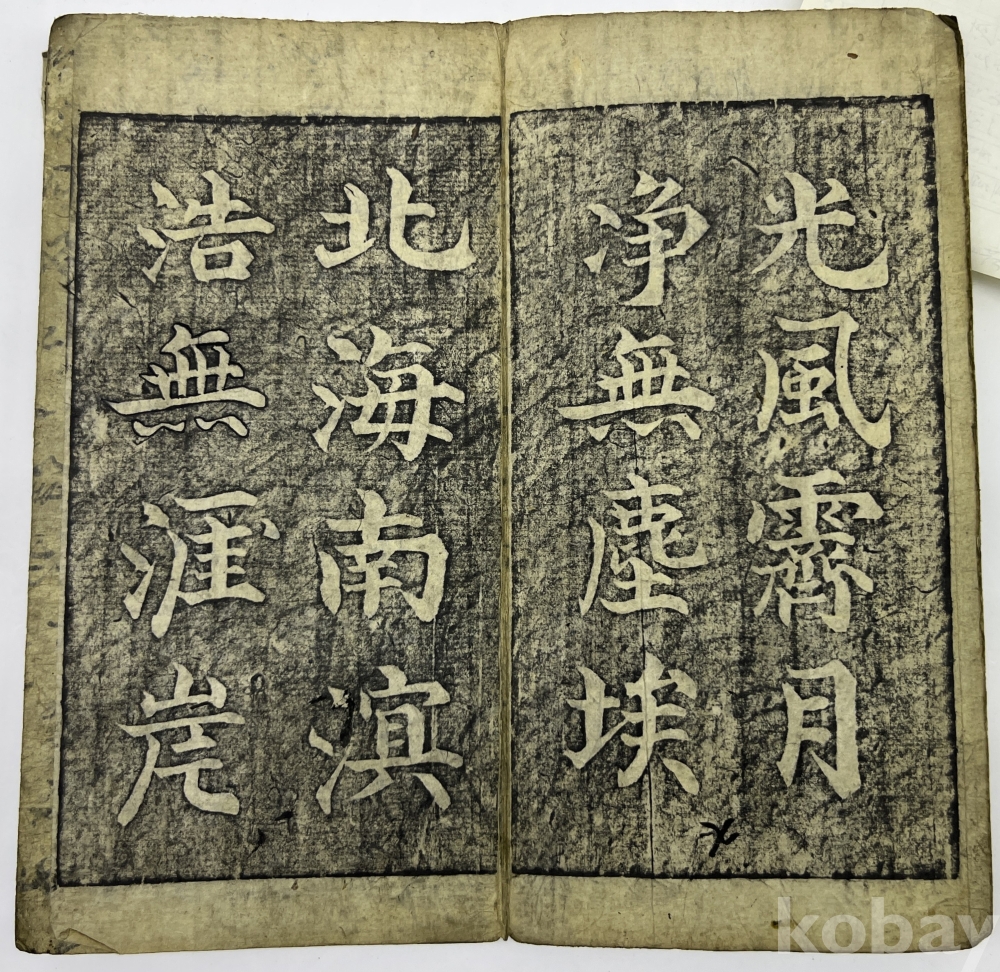 光風霽月
净無塵埃
北海南溟
浩無涯岸
kobay